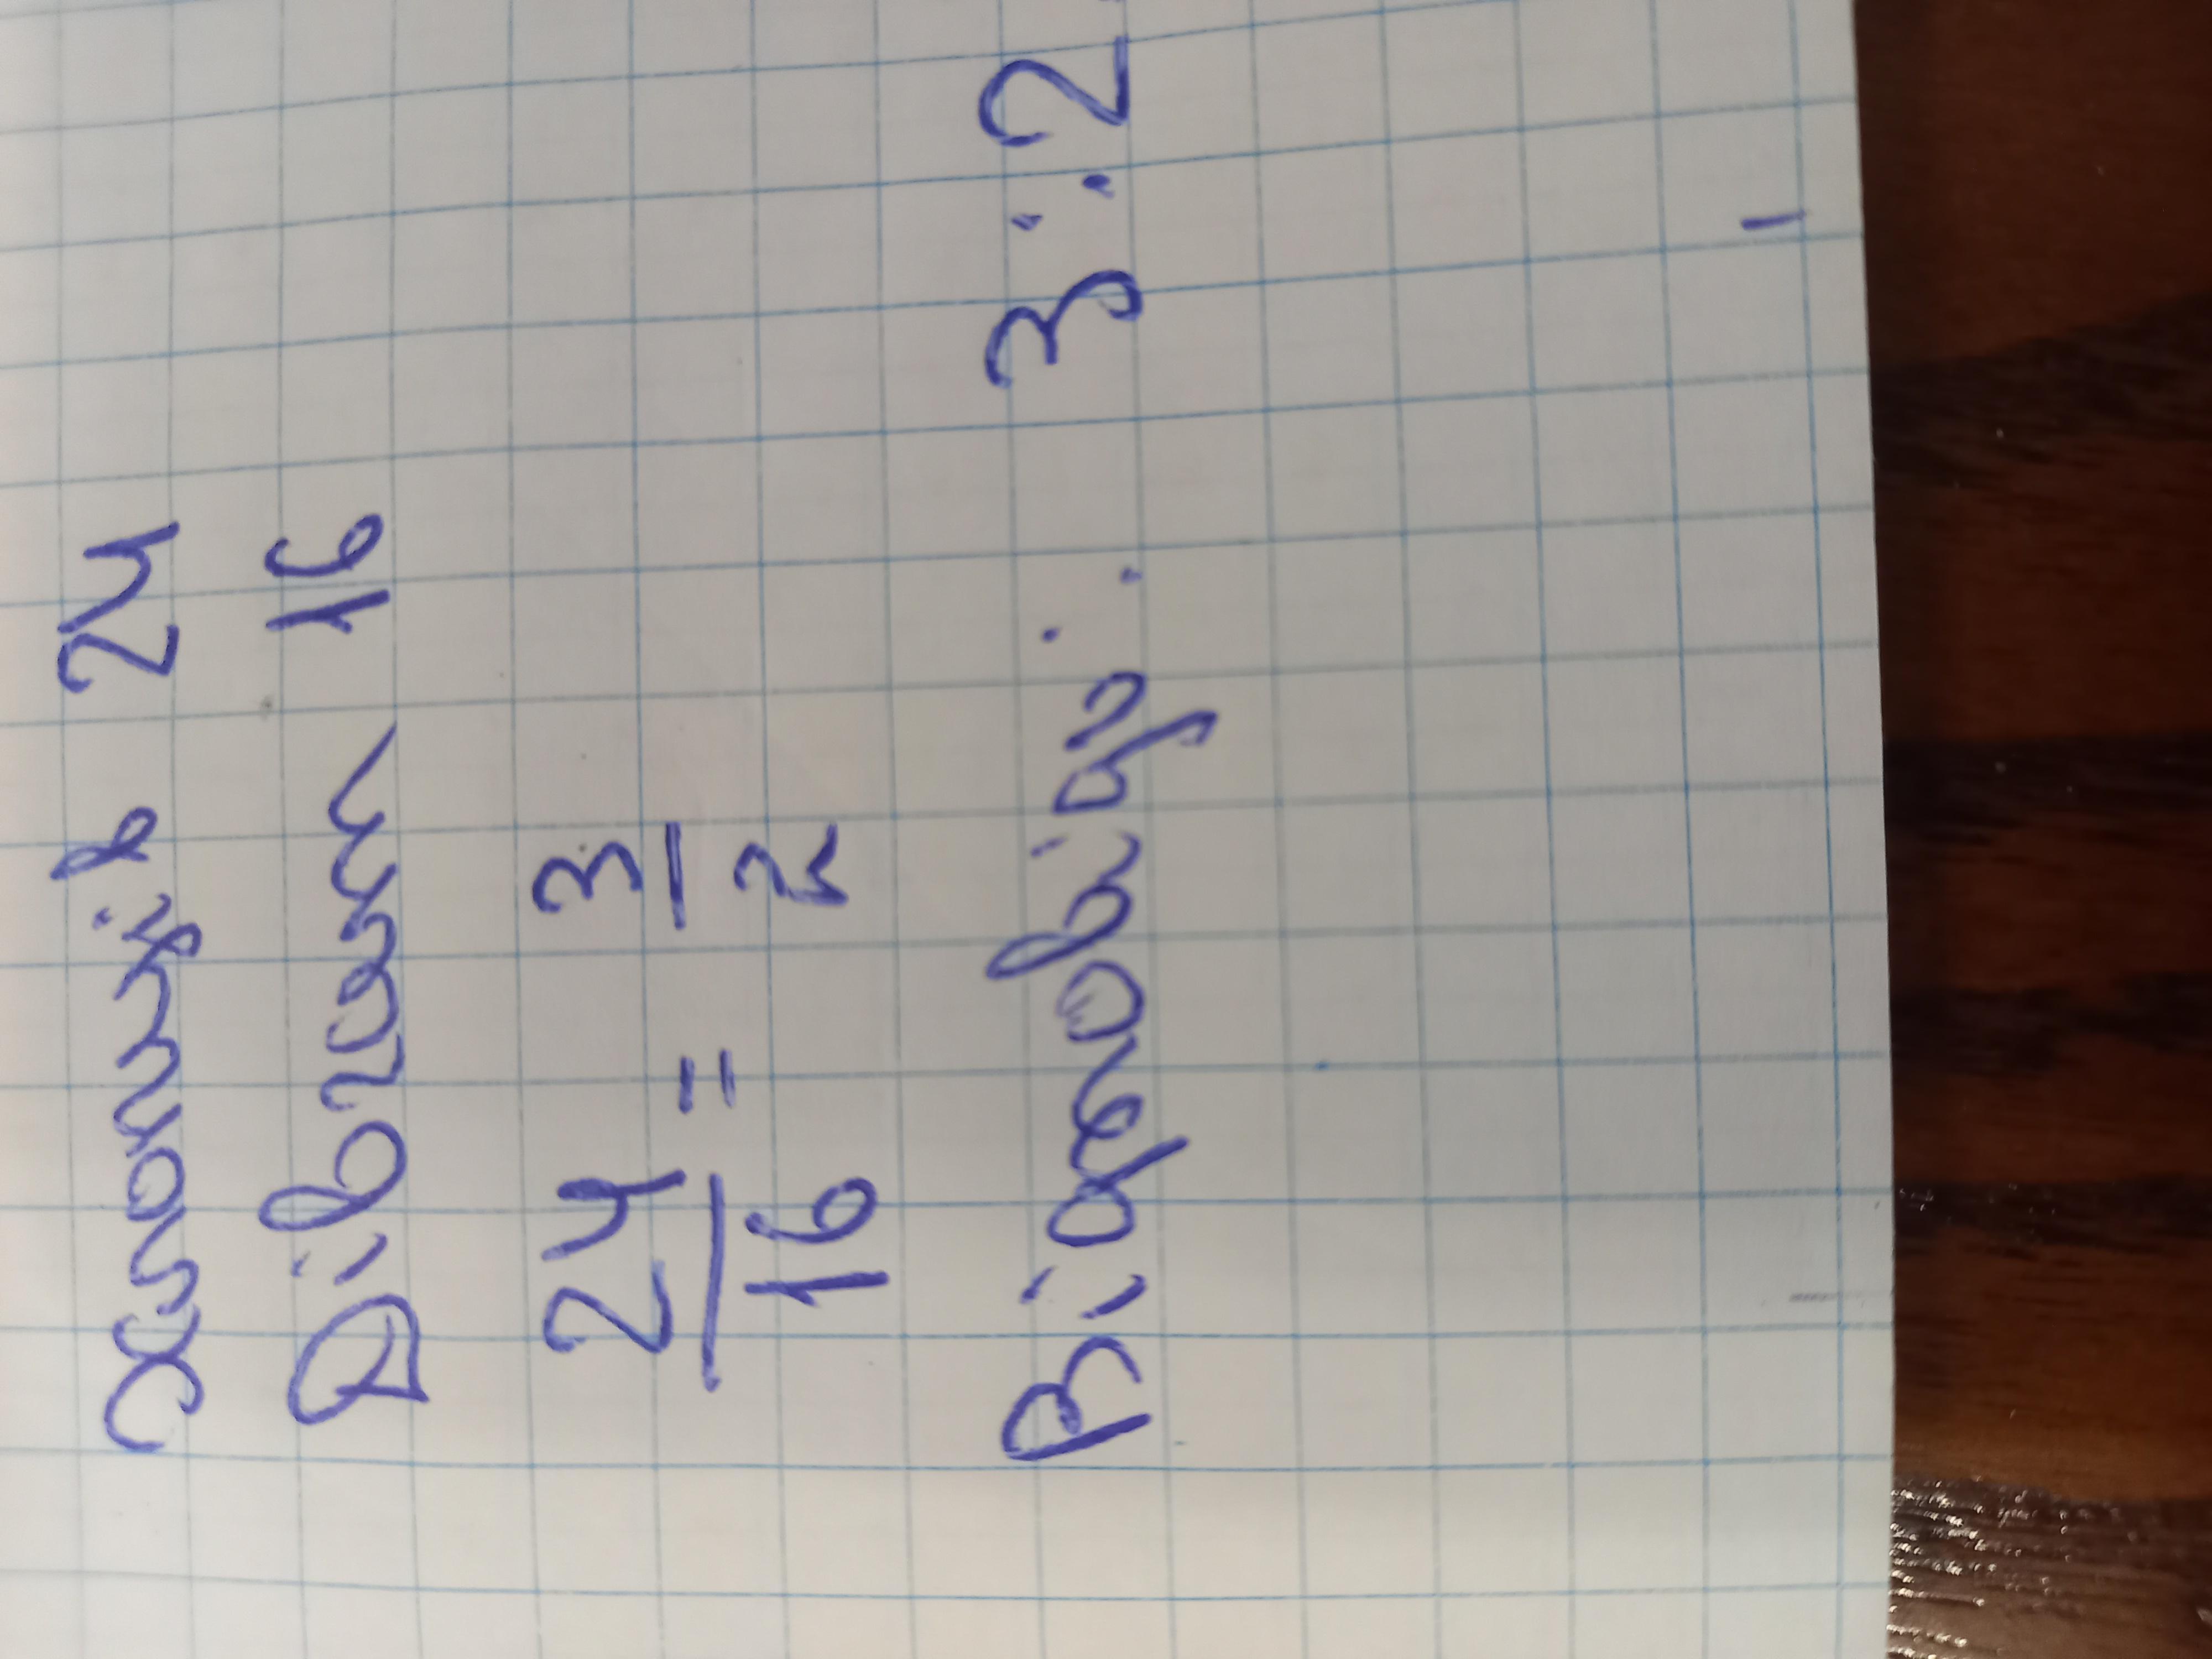 Хлопців 24
Дівчат 16
24/16 = 3/2
Відповідь: 3:2